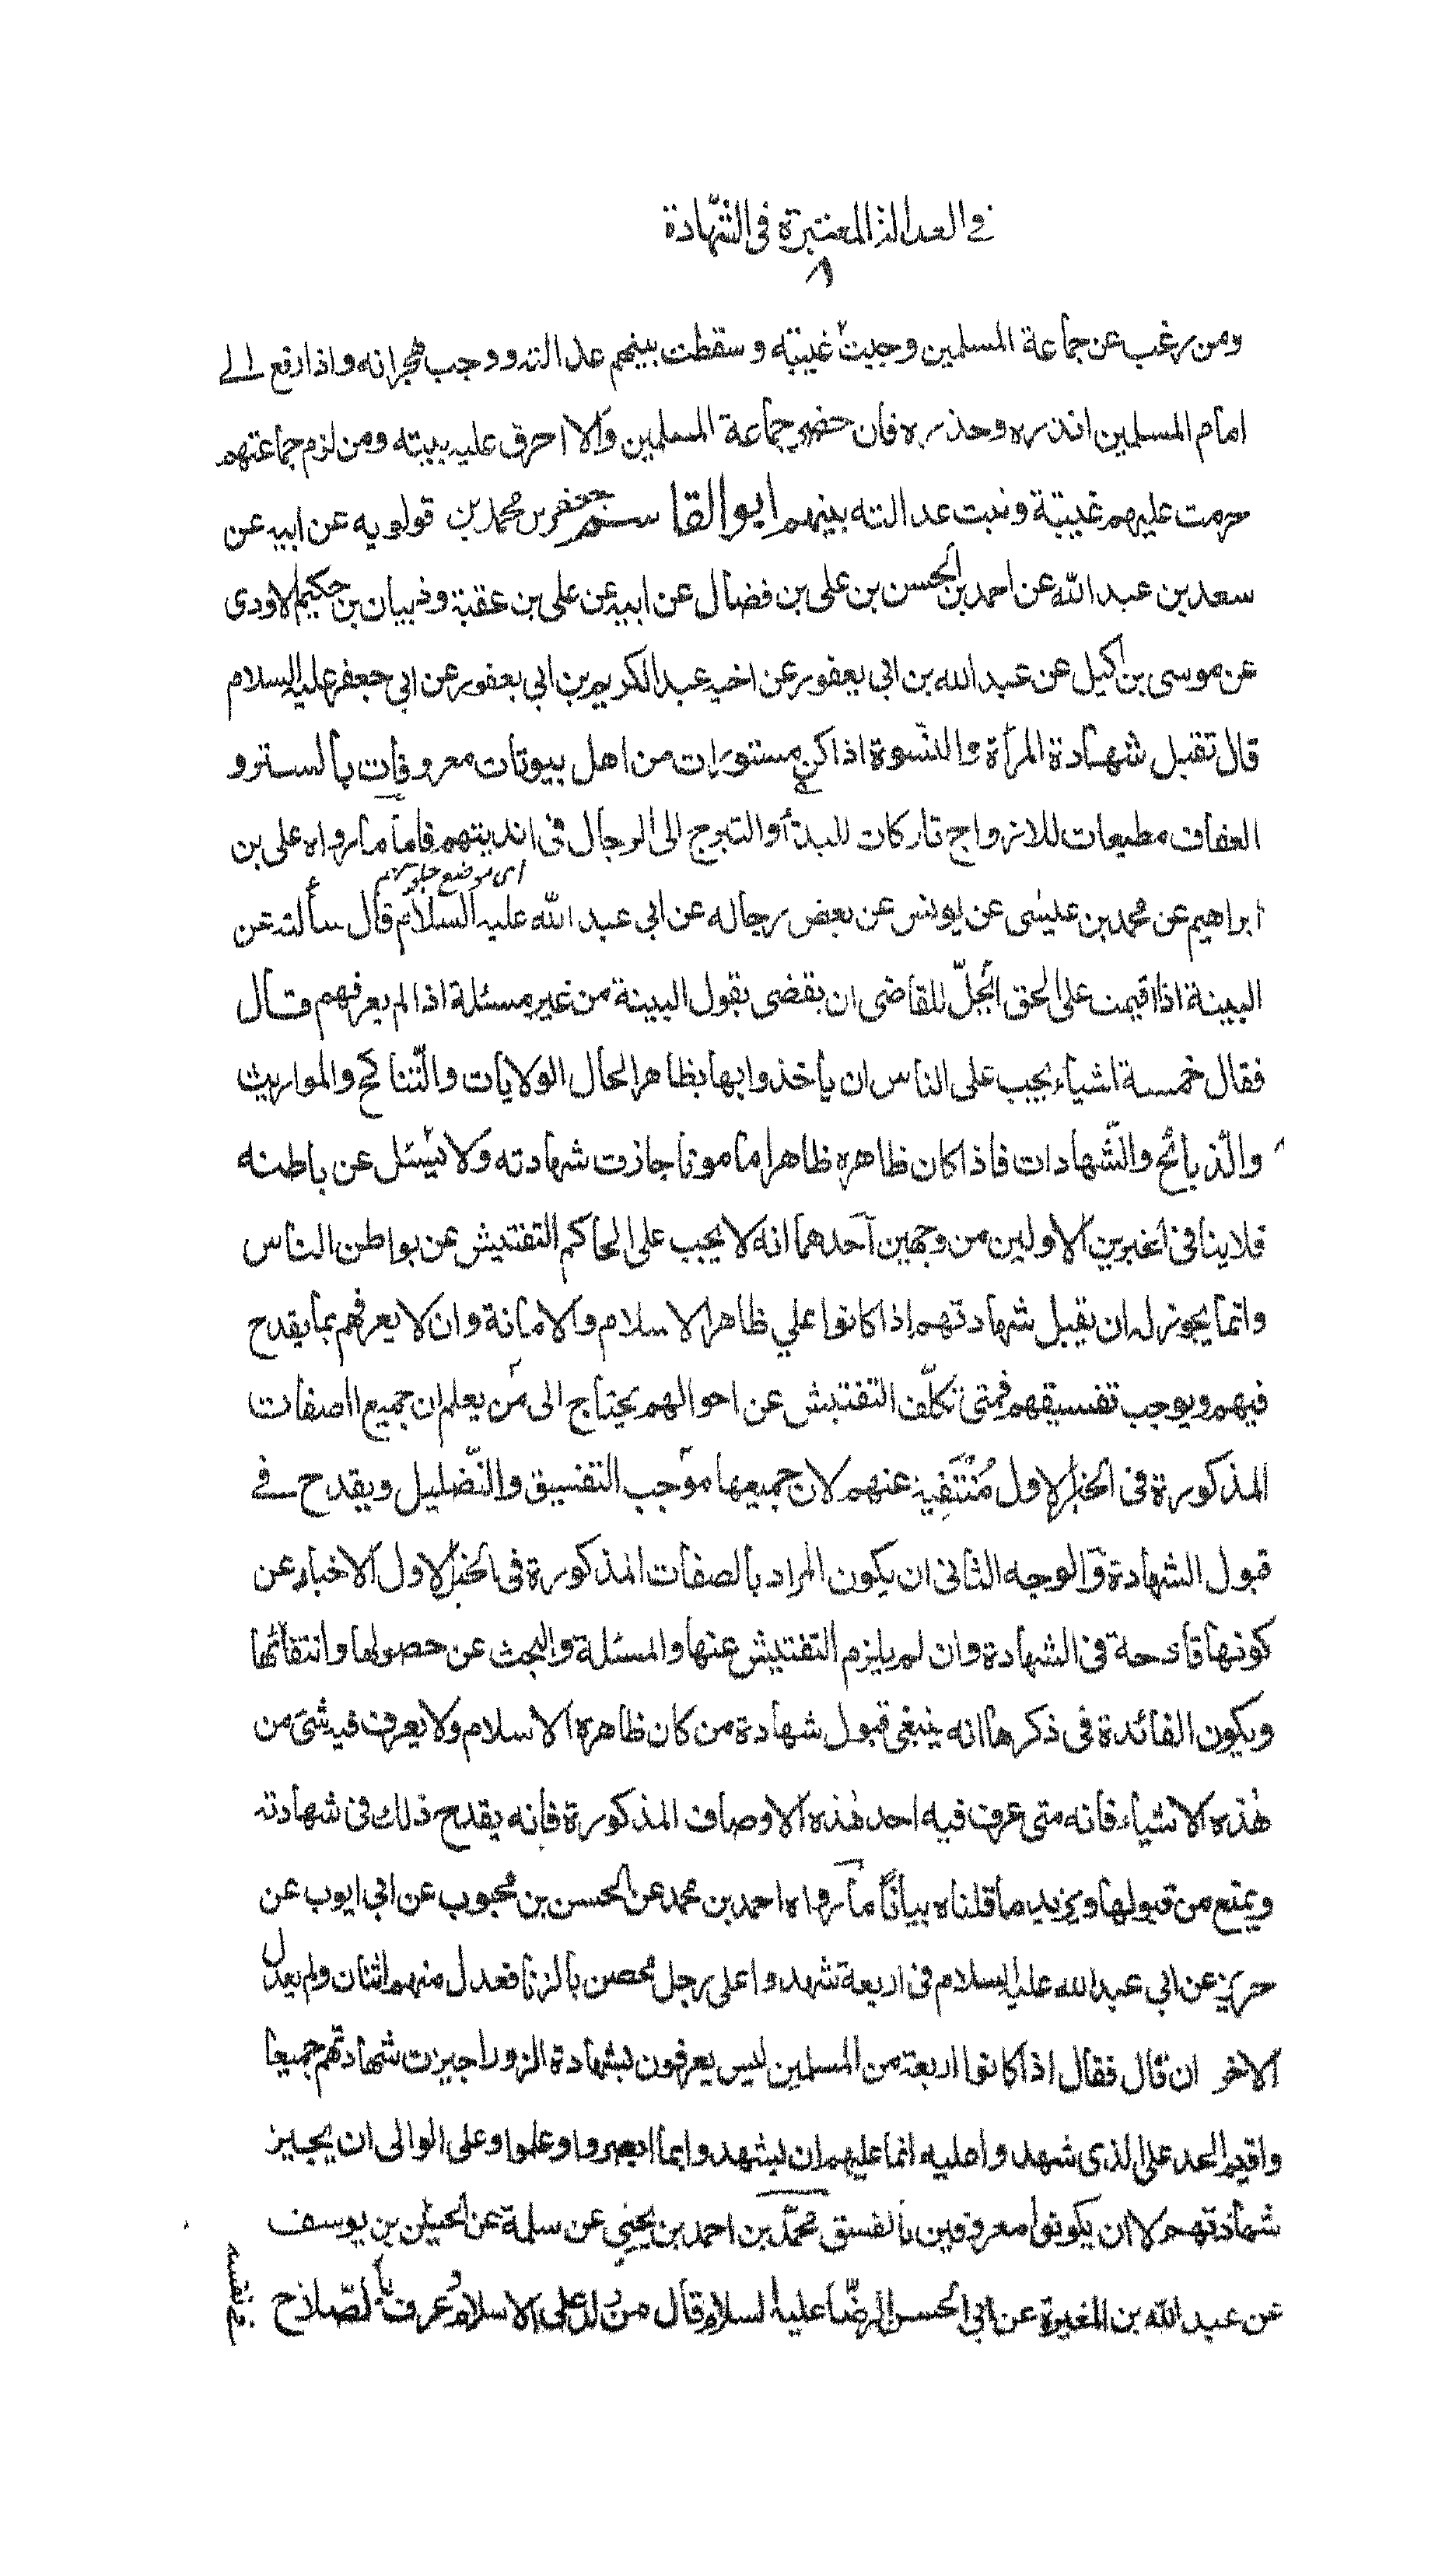 في العدالة المعتبرة في الشهادة
٨
ومن رغب عن جماعة المسلمين وجبت غيبته وسقطت بينهم عدالته ووجب هجرانه واذا رفع الى
امام المسلمين انذره وحذره فان حضر جماعة المسلمين والا احرق عليه بيته ومن لزم جماعتهم
حرمت عليهم غيبته وثبت عدالته بينهم ابو القاسم جعفر بن محمد بن قولويه عن ابيه عن
سعد بن عبد الله عن احمد بن الحسن بن على بن فضال عن ابيه عن على بن عقبة وذبيان بن حكيم الاودى
عن موسى بن اكيل عن عبد الله بن ابي يعفور عن اخيه عبد الكريم بن ابي يعفور عن ابي جعفر عليه السلام
قال تقبل شهادة المرأة والنسوة اذا كن مستورات من اهل بيوتات معروفات بالستر و
العفاف مطيعات للازواج تاركات للبذأ والتبرج الى الرجال فى انديتهم فاما ما رواه على بن
اى موضع جلوسهم
ابراهيم عن محمد بن عيسى عن يونس عن بعض رجاله عن ابي عبد الله عليه السلام قال سألته عن
البينة اذا اقيمت على الحق أيحلّ للقاضى ان يقضى بقول البينة من غير مسئلة اذا لم يعرفهم قال
فقال خمسة اشياء يجب على الناس ان يأخذوا بها بظاهر الحال الولايات والتّناكح والمواريث
والذبائح والشّهادات فاذا كان ظاهره ظاهرا مامونا جازت شهادته ولا يسئل عن باطنه
فلاينافى الخبرين الاولين من وجهين احدهما انه لا يجب على الحاكم التفتيش عن بواطن الناس
وانما يجوز له ان يقبل شهادتهم اذا كانوا علي ظاهر الاسلام والامانة وان لا يعرفهم بما يقدح
فيهم ويوجب تفسيقهم فمتى تكلّف التفتيش عن احوالهم يحتاج الى من يعلم ان جميع الصفات
المذكورة فى الخبر الاول مُنْتَفِية عنهم لان جميعها موجب التفسيق والتّضليل ويقدح في
قبول الشهادة والوجه الثانى ان يكون المراد بالصفات المذكورة فى الخبر الاول الاخبار عن
كونها قادحة فى الشهادة وان لم يلزم التفتيش عنها والمسئلة والبحث عن حصولها وانتفائها
ويكون الفائدة فى ذكرها انه ينبغى قبول شهادة من كان ظاهره الاسلام ولا يعرف فيه شئ من
هذه الاشياء فانه متى عرف فيه احد هذه الاوصاف المذكورة فانه يقدح ذلك فى شهادته
ويمنع من قبولها ويزيد ما قلناه بيانًا ما رواه احمد بن محمد عن الحسن بن محبوب عن ابي ايوب عن
حريز عن ابي عبد الله عليه السلام فى اربعة شهدوا على رجل محصن بالزنا فعدل منهم اثنان ولم يعدل
الاخر ان قال فقال اذا كانوا اربعة من المسلمين ليس يعرفون بشهادة الزور اجيزت شهادتهم جميعا
واقيم الحد على الذى شهدوا عليه انما عليهم ان يشهدوا بما ابصروا وعلموا وعلى الوالى ان يجيز
شهادتهم الا ان يكونوا معروفين بالفسق محمّد بن احمد بن يحيى عن سلمة عن الحسن بن يوسف
عن عبد الله بن المغيرة عن ابي الحسن الرضا عليه السلام قال من ولد على الاسلام وعرف بالصّلاح
فى نفسه